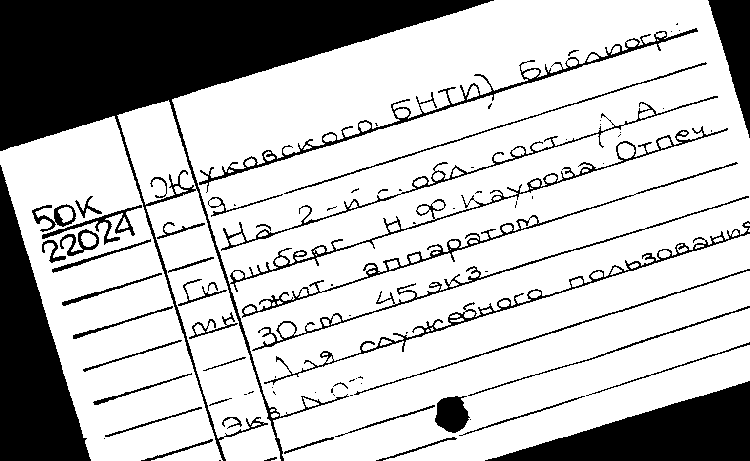 Жуковского. БНТИ) Библиогр.
50К
22024
с. 9.
На 2-й с. обл. сост. Л.А.
Гиршберг, Н.Ф. Каурова. Отпеч.
множит. аппаратом
30 ст. 45 экз.
Для служебного пользования
Экз. N